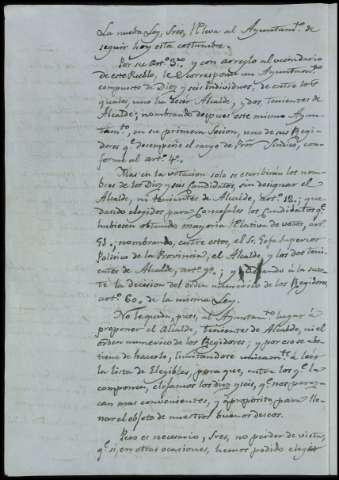 La nueva Ley, Sres, releva al Ayuntamto. de
seguir hoy esta costumbre.
Por su artº. 3º. y con arreglo al vecindario
de este Pueblo, le corresponde un Ayuntamto.
compuesto de Diez y seis individuos, de entre los
quales uno ha de ser Alcalde, y dos, tenientes de
Alcalde; nombrando despues este mismo Ayun-
tamto., en su primera sesion, uno de sus Regi-
dores qe. desempeñe el cargo de Pror. Sindico, con-
forme al artº. 4º.
Mas en la votacion solo se escribirán los nom-
bres de los Diez y seis Candidatos, sin designar el
Alcalde, ni tenientes de Alcalde, artº. ; que-
dando elegidos para Concejales los Candidatos qe.
hubieren obtenido mayoría relativa de votos, artº.
51., nombrando, entre estos, el Sr. Gefe Superior
Politico de la Provincia, el Alcalde, y los dos teni-
entes de Alcalde, artº. 9º.; y dejando á la suer-
te la decision del orden numerico de los Regidores,
artº. 60, de la misma Ley.
No le queda, pues, al Ayuntamto. lugar á
proponer el Alcalde, tenientes de Alcalde, ni el
orden numerico de los Regidores; y por eso se abs-
tiene de hacerlo, limitandose unicamte. á leer
la lista de Elegibles, para que, entre los qe. la
componen, elijamos los diez y seis, qe. nos parezcan
mas convenientes, y á proposito, para lle-
nar el objeto de nuestros buenos deseos.
Pero es necesario, Sres, no perder de vista,
qe. si, en otras ocasiones, hemos podido elegir